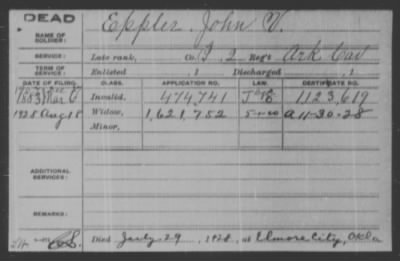 DEAD
NAME OF SOLDIER: Eppler, John V.
SERVICE: Late rank, Co. 2 Reg't Ark Cav
TERM OF SERVICE: Enlisted , 1 Discharged , 1
DATE OF FILING. CLASS. APPLICATION NO. LAW. CERTIFICATE NO.
1883 Mar Invalid, 474,741 1123,619
1928 Aug 18 Widow, 1,621,752 5-1-20 A 11-30-28
Minor,
ADDITIONAL SERVICES:
REMARKS:
Died July 29, 1928, at Elmore City, Okla